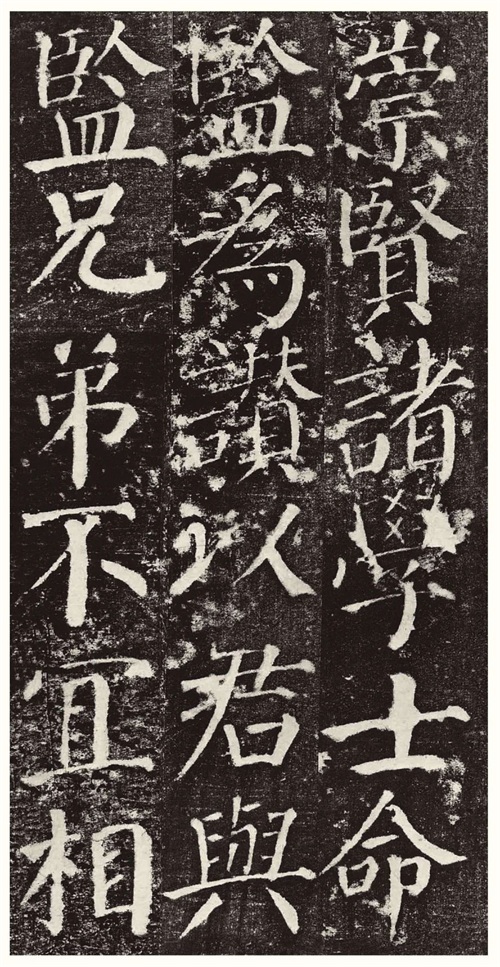 崇賢諸學士命
監爲讃以君與
監兄弟不宜相